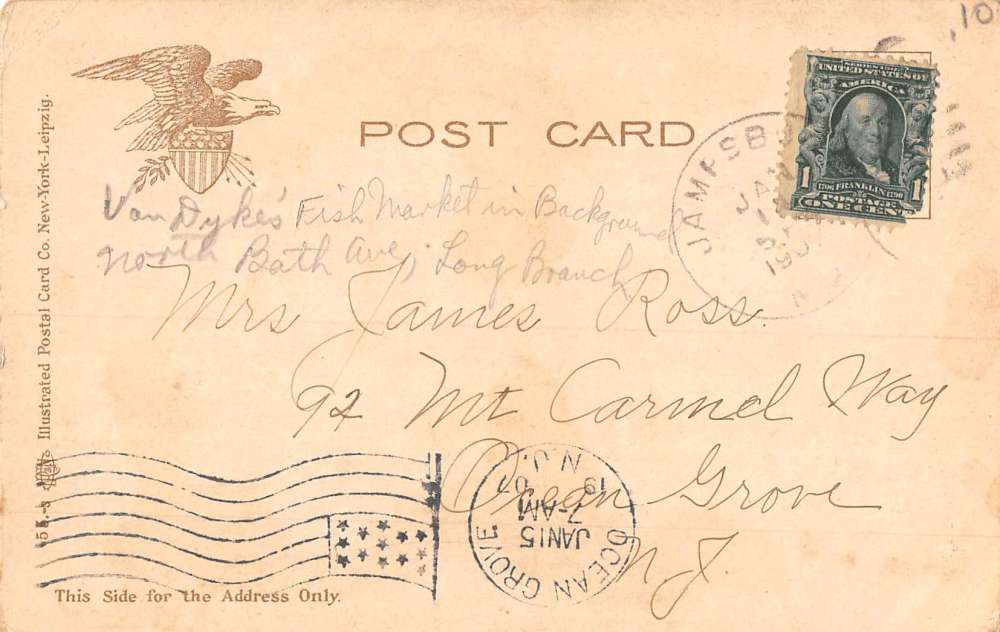 10
POST CARD
SERIES 1902
UNITED STATES OF
AMERICA
1 1706 FRANKLIN 1790 1
POSTAGE
ONE CENT
JAMESB
JAN
N
Van Dyke's Fish Market in Background
North Bath Ave, Long Branch
Mrs James Ross.
92 Mt Carmel Way
Ocean Grove
N.J.
OCEAN GROVE
N.J.
JAN 15
7-AM
19
This Side for the Address Only.
Illustrated Postal Card Co. New-York-Leipzig.